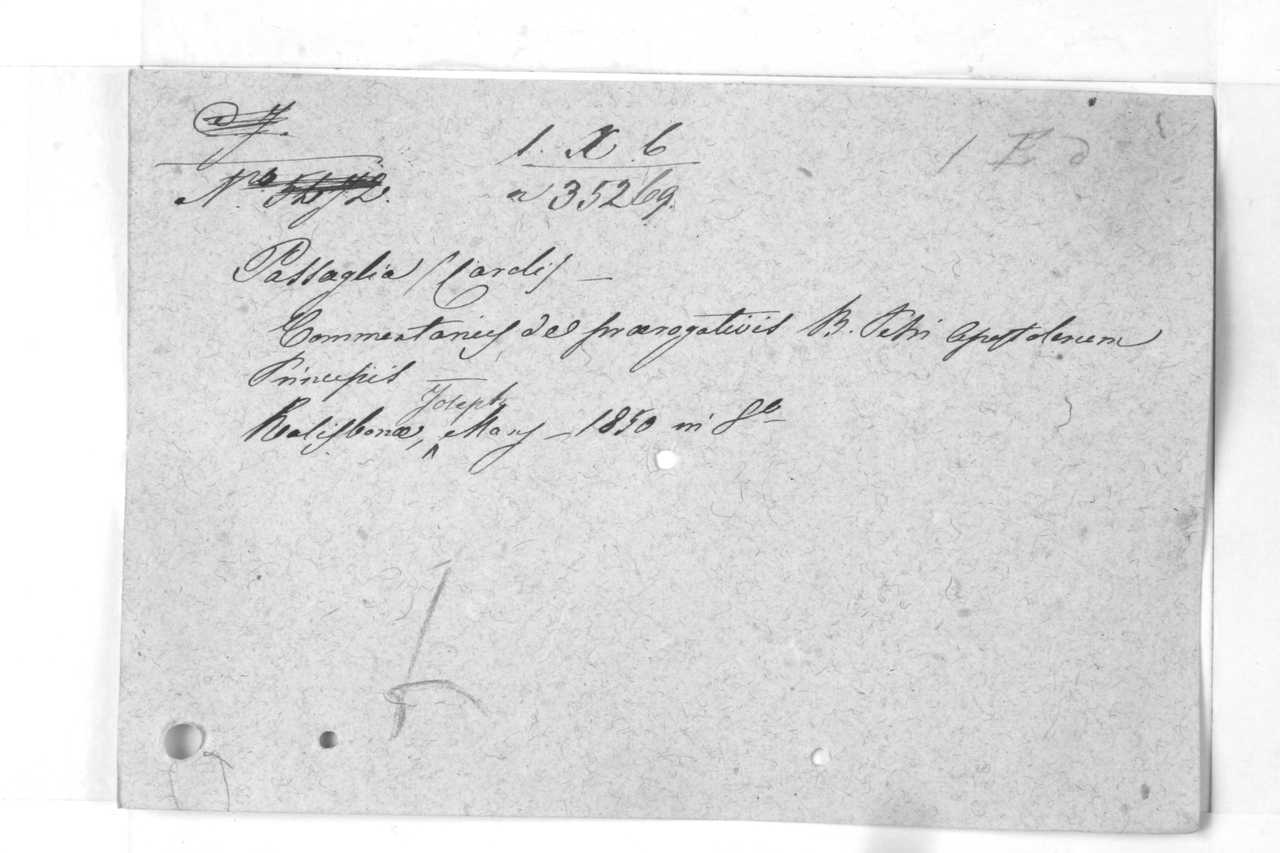 1. X. 6
1 E d
Nro
a 35269.
Passaglia (Caroli) —
Commentarius de praerogativis B. Petri Apostolorum
Principis
Joseph
Ratisbonae, Manz — 1850 in 8o